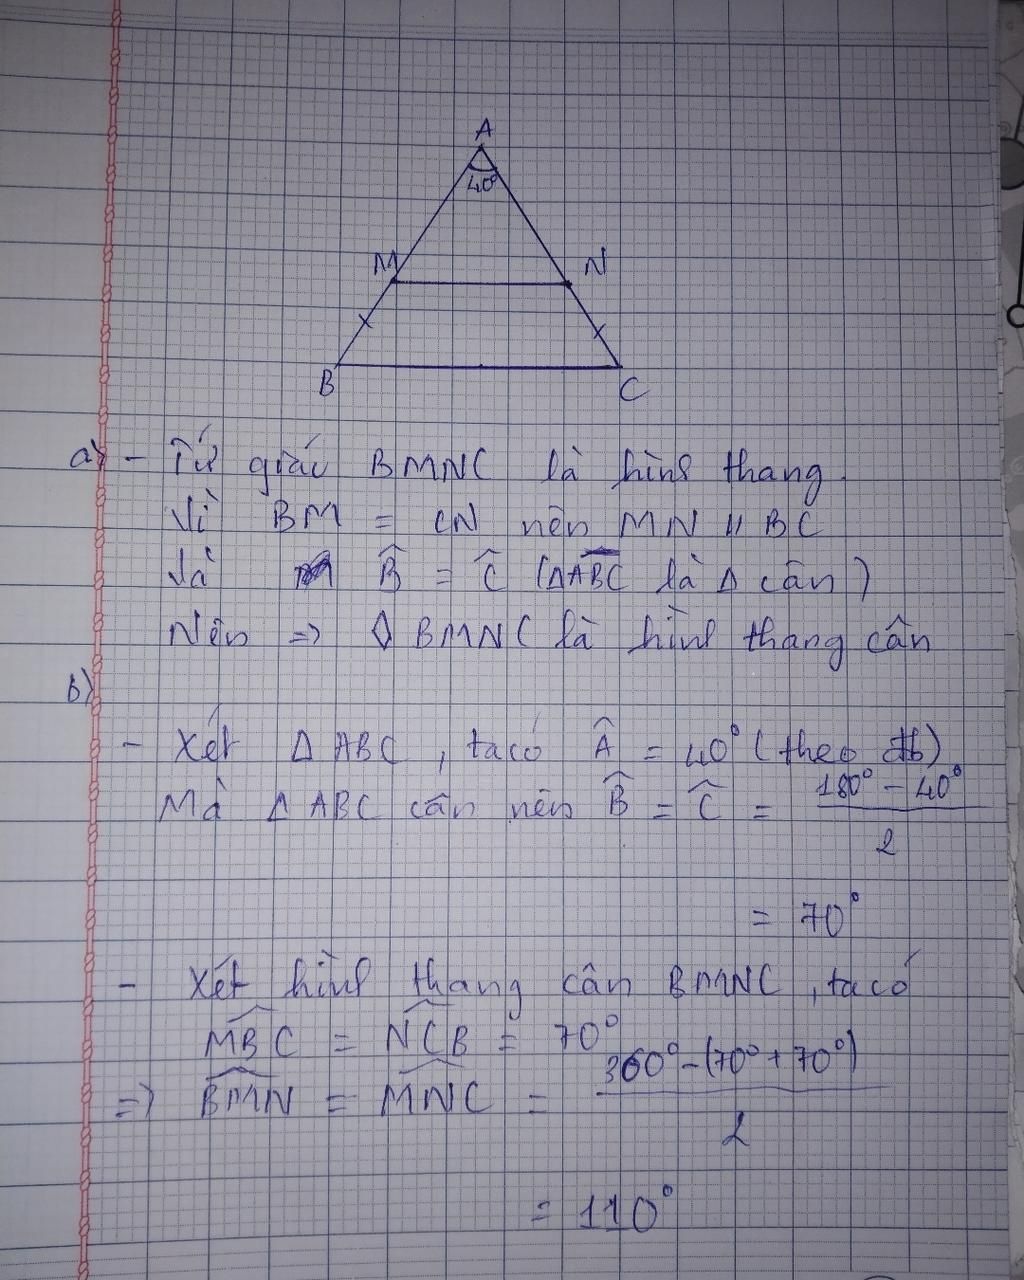 A
40°
M
N
B
C
a) - Tứ giác BMNC là hình thang.
Vì BM = CN nên MN // BC
Và B̂ = Ĉ (ΔABC là Δ cân)
Nên => ◊ BMNC là hình thang cân
b)
- Xét Δ ABC, ta có Â = 40° (theo đb)
Mà Δ ABC cân nên B̂ = Ĉ = (180° - 40°)/2
= 70°
- Xét hình thang cân BMNC, ta có
MBC = NCB = 70°
=> BMN = MNC = (360° - (70° + 70°))/2
= 110°